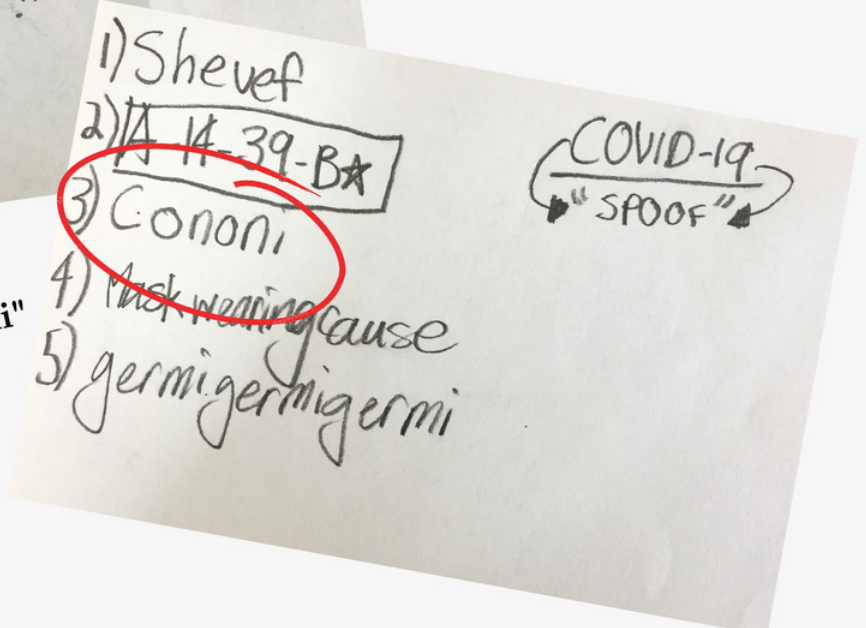 1) Shevef
2) A-14-39-B★
3) Cononi
4) Mask wearing cause
5) germigermigermi
COVID-19
"SPOOF"
i"